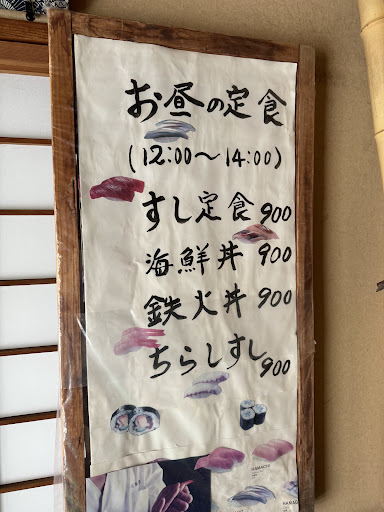 お昼の定食
(12:00〜14:00)
すし定食 900
海鮮丼 900
鉄火丼 900
ちらしすし 900
HAMACHI